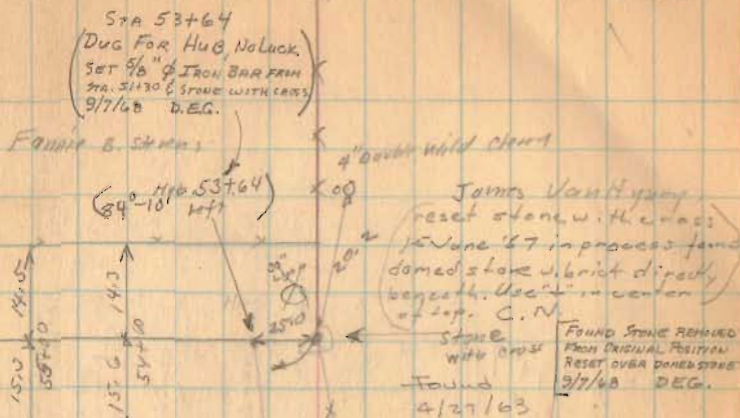 STA 53+64
(DUG FOR HUB, NO LUCK
SET 5/8" ϕ IRON BAR FROM
STA. 51+30 & STONE WITH CROSS
9/7/68 D.E.G.)
Fannie B. Stevens
4" Double Wild Cherry
Hub 53+64
(84°-10' left)
James Van
(reset stone w. the cross
15 June '67 in process found
domed stone w. brick directly
beneath. Use "+" in center
of top. C.N.)
14.5
14.3
20.2
25.0
15.0
55+00
15.6
54+00
stone
with cross
Found
4/27/63
[FOUND STONE REMOVED
FROM ORIGINAL POSITION
RESET OVER DOMED STONE
9/7/68 D.E.G.